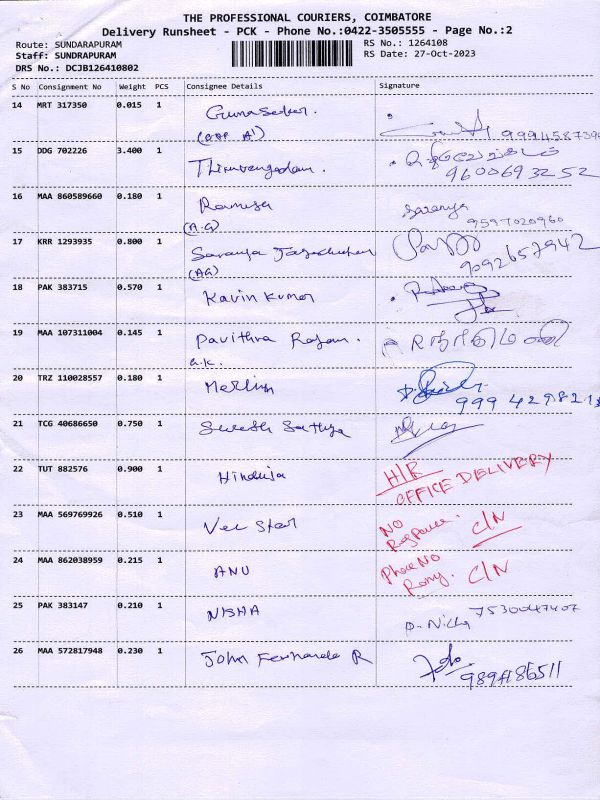 THE PROFESSIONAL COURIERS, COIMBATORE
Delivery Runsheet - PCK - Phone No.:0422-3505555 - Page No.:2
Route: SUNDARAPURAM RS No.: 1264108
Staff: SUNDRAPURAM RS Date: 27-Oct-2023
DRS No.: DCJB126410802
S No Consignment No Weight PCS Consignee Details Signature
14 MRT 317350 0.015 1 Gunasekar.
15 DDG 702226 3.400 1 Thiruvengadam. 9600693252
16 MAA 860589660 0.180 1 Ramya Saranya
(A.G) 9597020960
17 KRR 1293935 0.800 1 Saranya 9092657942
(AG)
18 PAK 383715 0.570 1 Kavin Kumar
19 MAA 107311004 0.145 1 Pavithra Rajan.
20 TRZ 110028557 0.180 1 Merlin
21 TCG 40686650 0.750 1 Suresh Sathya
22 TUT 882576 0.900 1 Hinduja H/R
OFFICE DELIVERY
23 MAA 569769926 0.510 1 Vee Star NO
Response. C/N
24 MAA 862038959 0.215 1 ANU Phone No
Rong. C/N
25 PAK 383147 0.210 1 NISHA 7530047407
26 MAA 572817948 0.230 1 John R